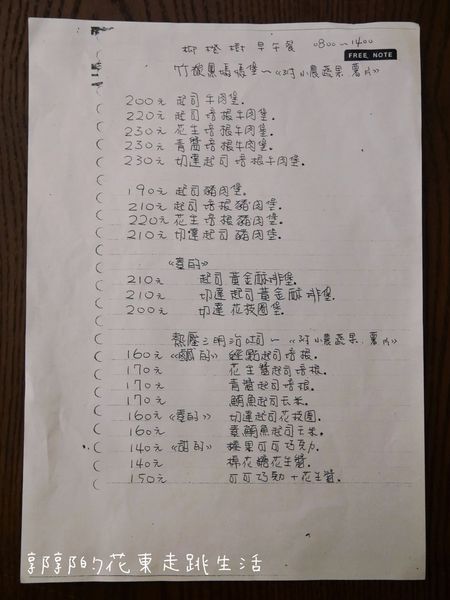 柳橙樹 早午餐 0800~1400
FREE NOTE
竹碳黑媽媽堡~《附小農蔬果.薯片》
200元 起司牛肉堡.
220元 起司培根牛肉堡.
230元 花生培根牛肉堡.
230元 青醬培根牛肉堡.
230元 切達起司培根牛肉堡.
190元 起司豬肉堡.
210元 起司培根豬肉堡.
220元 花生培根豬肉堡.
210元 切達起司豬肉堡.
《素的》
210元 起司黃金酥排堡.
210元 切達起司黃金酥排堡.
200元 切達花枝圈堡.
熱壓三明治 ~《附小農蔬果.薯片》
160元《鹹的》經點起司培根.
170元 花生醬起司培根.
170元 青醬起司培根.
170元 鮪魚起司玉米.
160元《素的》切達起司花枝圈.
160元 素鮪魚起司玉米.
140元《甜的》榛果可可巧克力.
140元 棉花糖花生醬.
150元 可可巧克力+花生醬.
郭郭的花東走跳生活